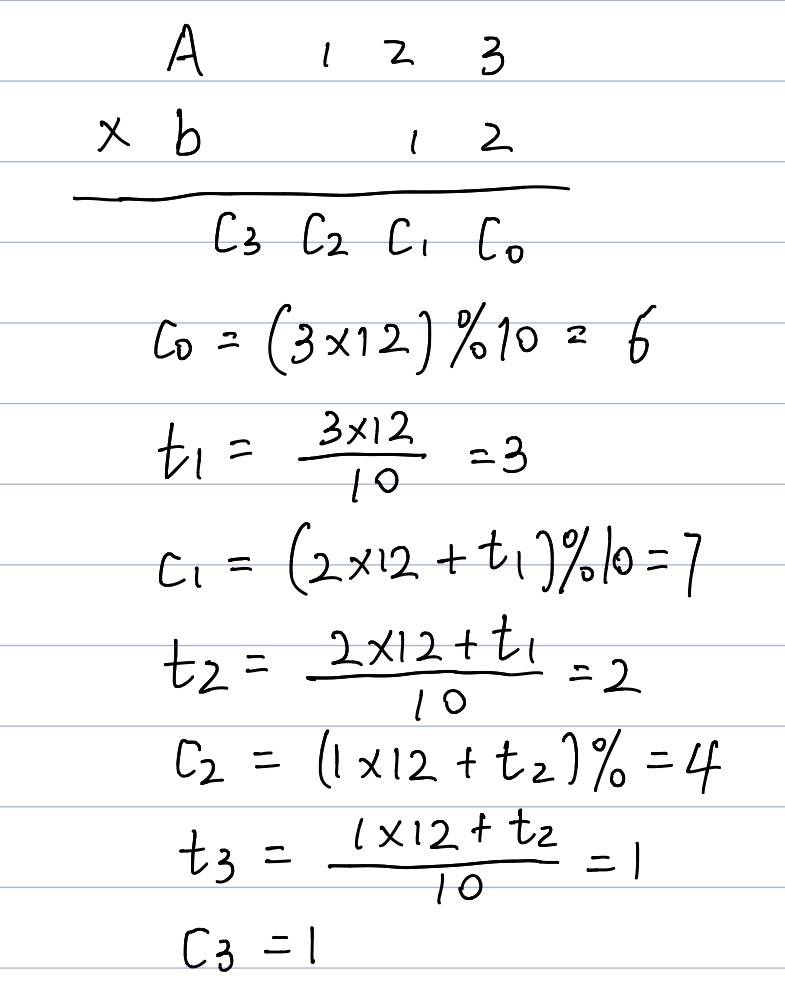 A 1 2 3
× b 1 2
C3 C2 C1 C0
C0 = (3×12)%10 = 6
t1 = 3×12/10 = 3
C1 = (2×12 + t1)%10 = 7
t2 = 2×12 + t1/10 = 2
C2 = (1×12 + t2)% = 4
t3 = 1×12 + t2/10 = 1
C3 = 1